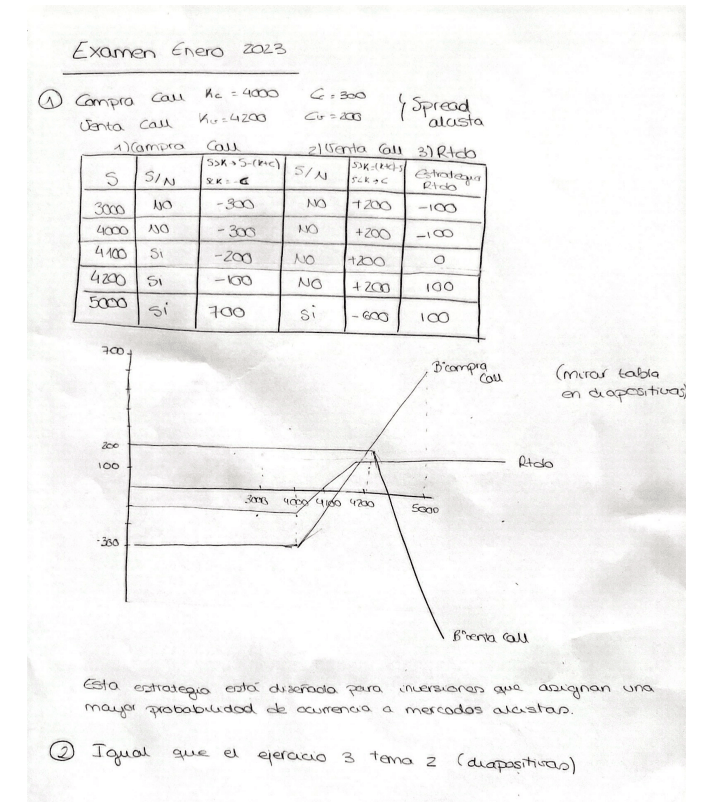 Examen Enero 2023
① Compra Call Kc = 4000 Cc = 300 } Spread
Venta Call Kv = 4200 Cv = 200 alcista
1) Compra Call 2) Venta Call 3) Rtdo
S S/N S>K → S-(K+C) S/N S>K → (K+C)-S Estrategia
S<K = -C S<K → C Rtdo
3000 NO -300 NO +200 -100
4000 NO -300 NO +200 -100
4100 Si -200 NO +200 0
4200 Si -100 NO +200 100
5000 Si 700 Si -600 100
700
Bº compra
Call
(mirar tabla
en diapositivas)
200
100
Rtdo
3000 4000 4100 4200 5000
-300
Bº venta Call
Esta estrategia está diseñada para inversiones que asignan una
mayor probabilidad de ocurrencia a mercados alcistas.
② Igual que el ejercicio 3 tema 2 (diapositivas)